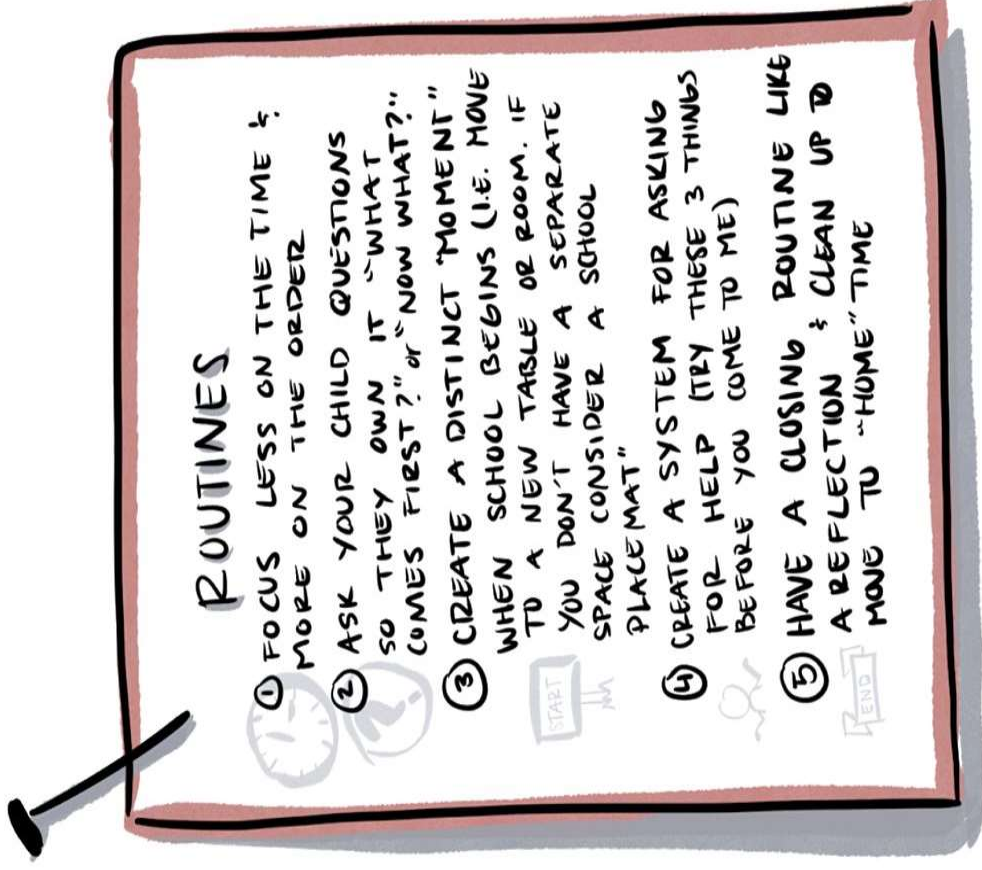 ROUTINES
① FOCUS LESS ON THE TIME &
MORE ON THE ORDER
② ASK YOUR CHILD QUESTIONS
SO THEY OWN IT "WHAT
COMES FIRST?" or "NOW WHAT?"
③ CREATE A DISTINCT "MOMENT"
WHEN SCHOOL BEGINS (I.E. MOVE
TO A NEW TABLE OR ROOM. IF
YOU DON'T HAVE A SEPARATE
SPACE CONSIDER A SCHOOL
PLACEMAT"
START
④ CREATE A SYSTEM FOR ASKING
FOR HELP (TRY THESE 3 THINGS
BEFORE YOU COME TO ME)
⑤ HAVE A CLOSING ROUTINE LIKE
A REFLECTION & CLEAN UP TO
MOVE TO "HOME" TIME
END